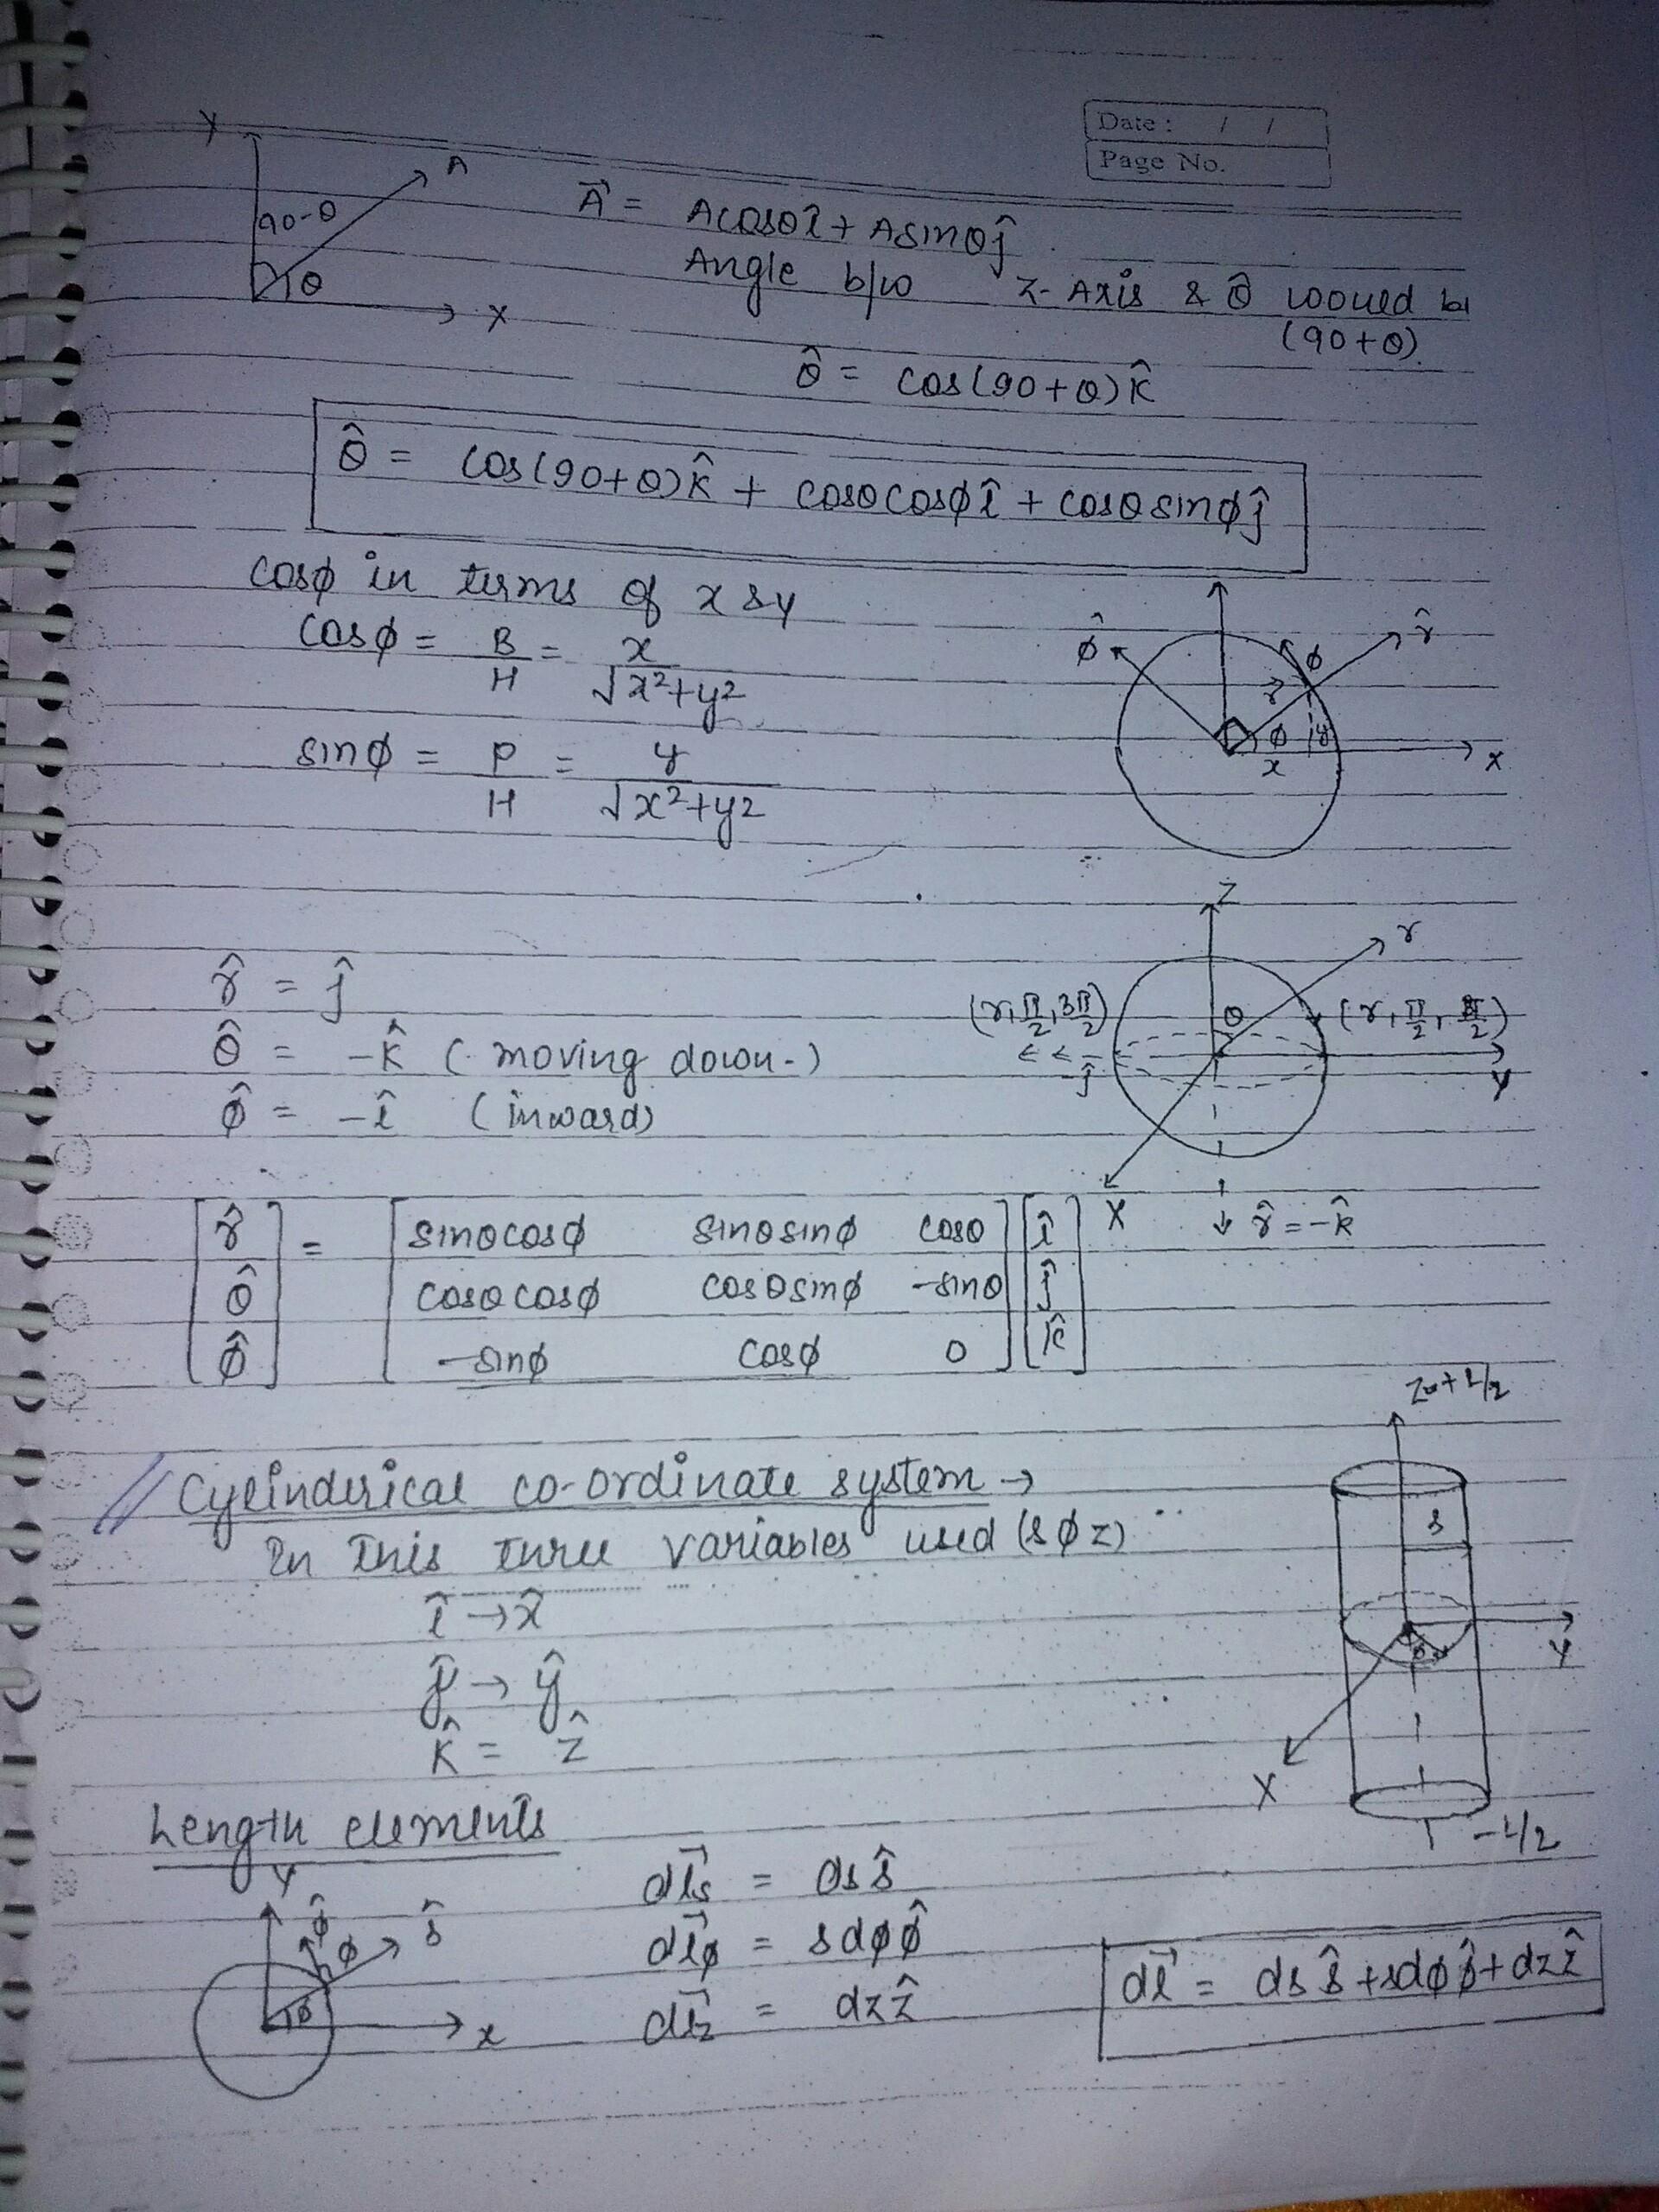 Date : / /
Page No.
Y
A
90-θ
θ
X
A⃗ = Acosθî + Asinθĵ
Angle b/w Z-Axis & θ̂ would be
(90+θ).
θ̂ = cos(90+θ)k̂
θ̂ = cos(90+θ)k̂ + cosθcosφî + cosθsinφĵ
cosφ in terms of x & y
cosφ = B/H = x/√x²+y²
sinφ = P/H = y/√x²+y²
φ̂
φ
r̂
r⃗
φ
y
x
X
Z
r
(r, π/2, 3π/2)
θ
(r, π/2, π/2)
-ĵ
Y
X
r̂ = -k̂
r̂ = ĵ
θ̂ = -k̂ (moving down-)
φ̂ = -î (inward)
[r̂] = [sinθcosφ sinθsinφ cosθ] [î]
[θ̂] [cosθcosφ cosθsinφ -sinθ] [ĵ]
[φ̂] [-sinφ cosφ 0] [k̂]
+L/2
Cylinderical co-ordinate system →
In this three variables used (s φ z)
î → x̂
ĵ → ŷ
k̂ = ẑ
s
Y
φ
X
-L/2
Length elements
Y
φ̂
φ
ŝ
φ
x
dl⃗s = ds ŝ
dl⃗φ = s dφ φ̂
dl⃗z = dz ẑ
dl⃗ = ds ŝ + sdφ φ̂ + dz ẑ